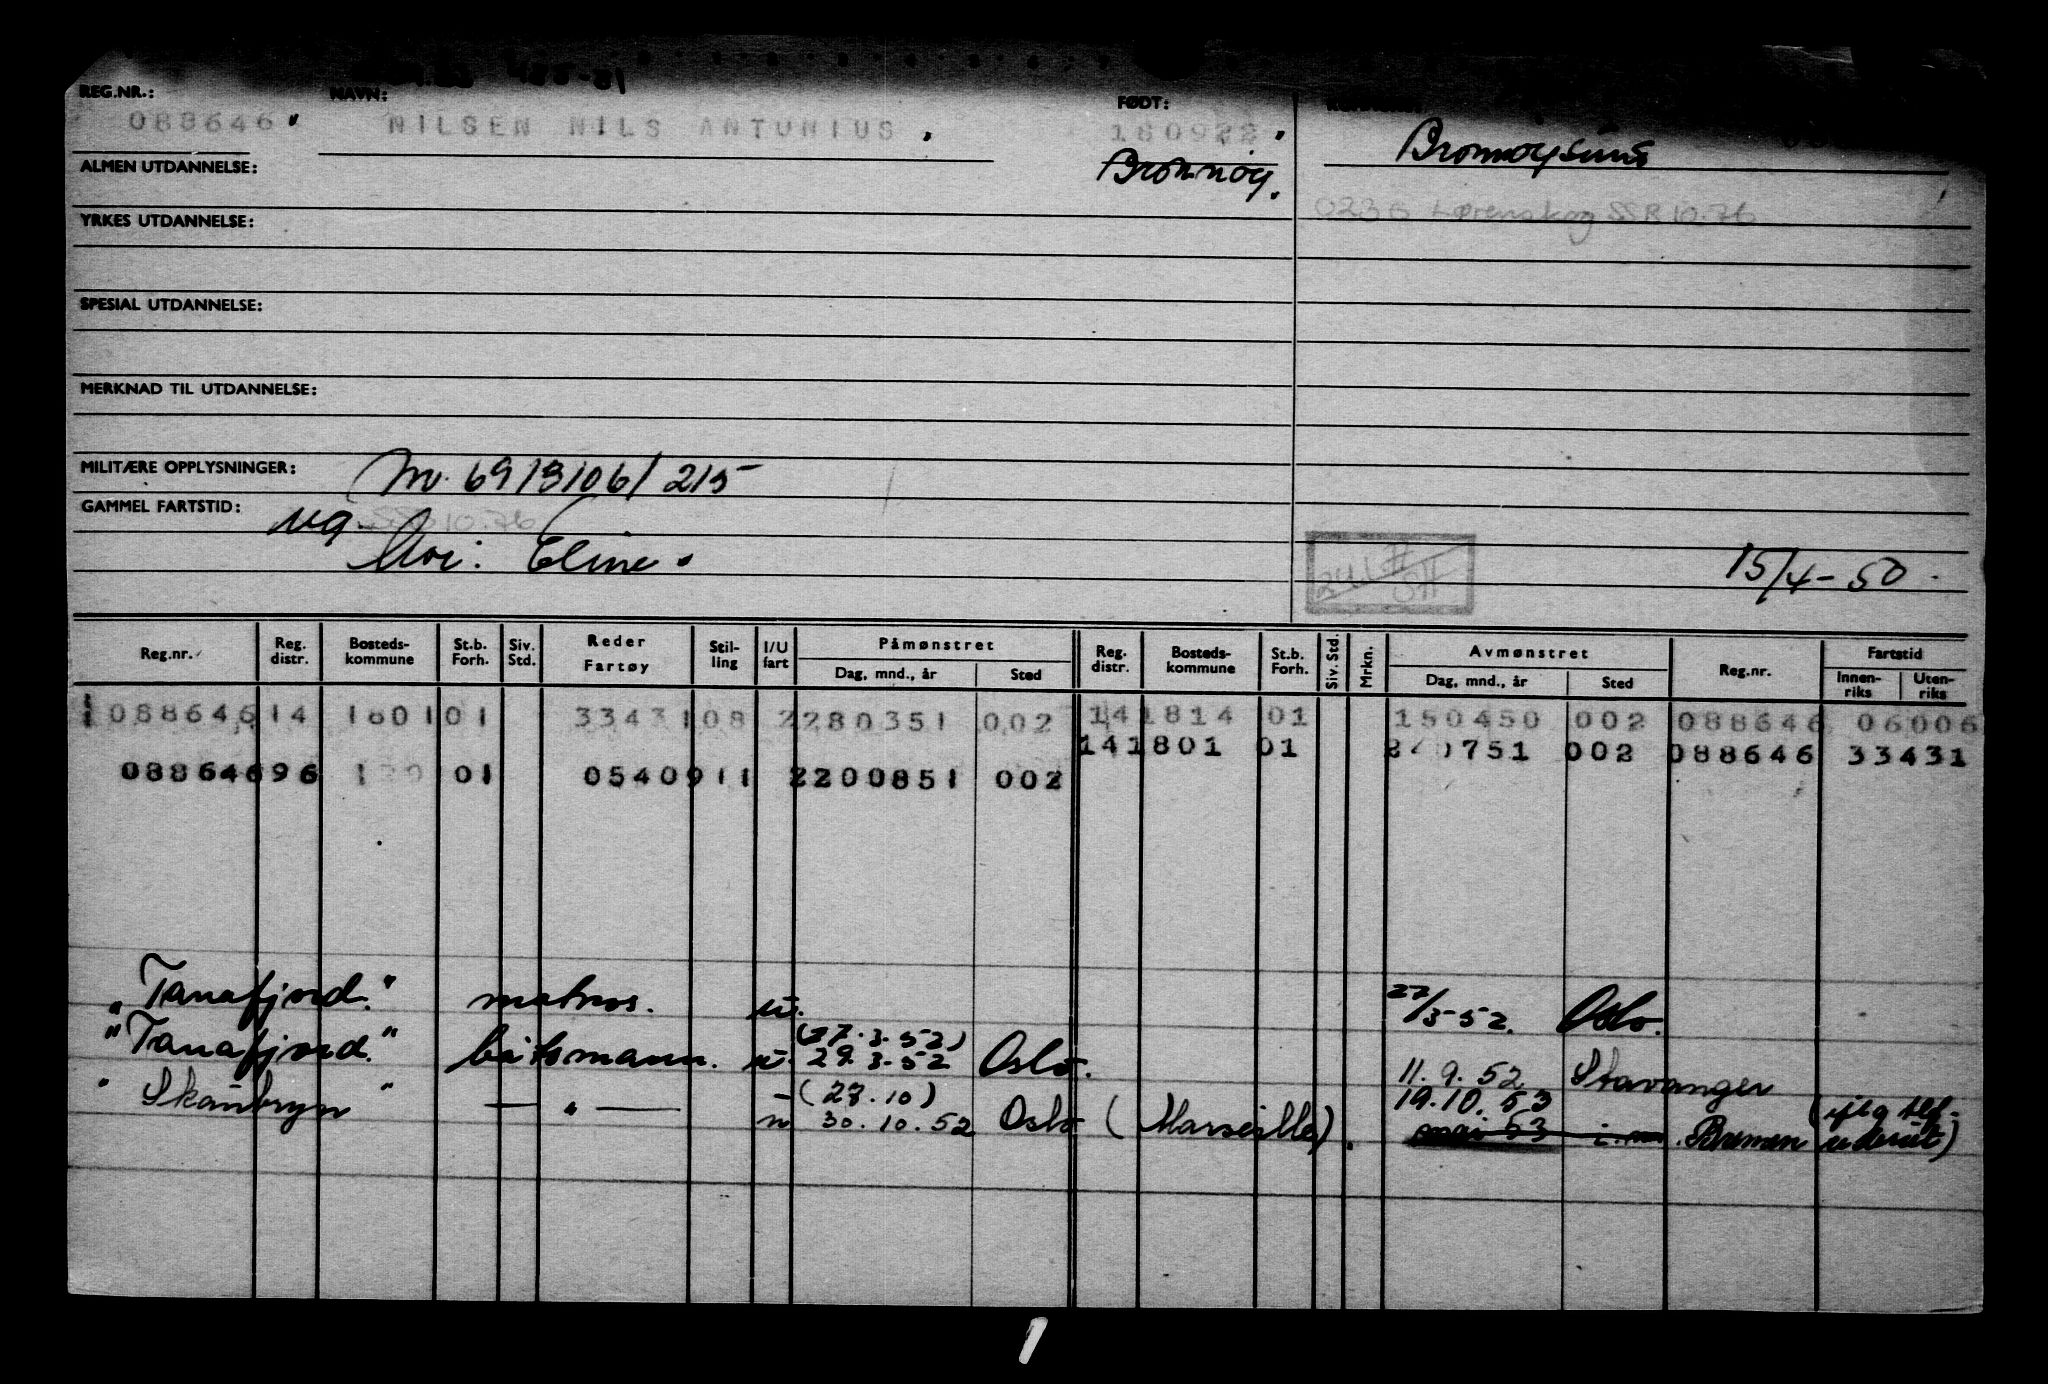 REG.NR.: NAVN: FØDT:
088646 NILSEN NILS ANTONIUS. 180922 Brønnøysund
ALMEN UTDANNELSE: Brønnøy.
YRKES UTDANNELSE: Lørenskog SSR 10.76
SPESIAL UTDANNELSE:
MERKNAD TIL UTDANNELSE:
MILITÆRE OPPLYSNINGER: M. 69/3/06/215
GAMMEL FARTSTID: SSR 10.76
Mor: Eline. 15/4-50.
Reg.nr. Reg. distr. Bosteds-kommune St.b. Forh. Siv. Std. Reder Fartøy Stil-ling I/U fart Påmønstret Dag, mnd., år Sted Reg. distr. Bosteds-kommune St.b. Forh. Siv. Std. Mrkn. Avmønstret Dag, mnd., år Sted Reg.nr. Fartstid Innen-riks Uten-riks
088646 14 1801 01 33431 08 2 280351 002 14 1814 01 150450 002 088646 06006
14 1801 01 240751 002 088646 33431
088646 96 01 05409 11 2 200851 002
"Tanafjord." matros. u. 27/3-52. Oslo.
"Tanafjord." båtsmann. u. (27.3.52) 29.3.52 Oslo. 11.9.52 Stavanger
"Skånbryn" — " — (27.10) 30.10.52 Oslo (Marseille). 19.10.53
mai 53 Bremen